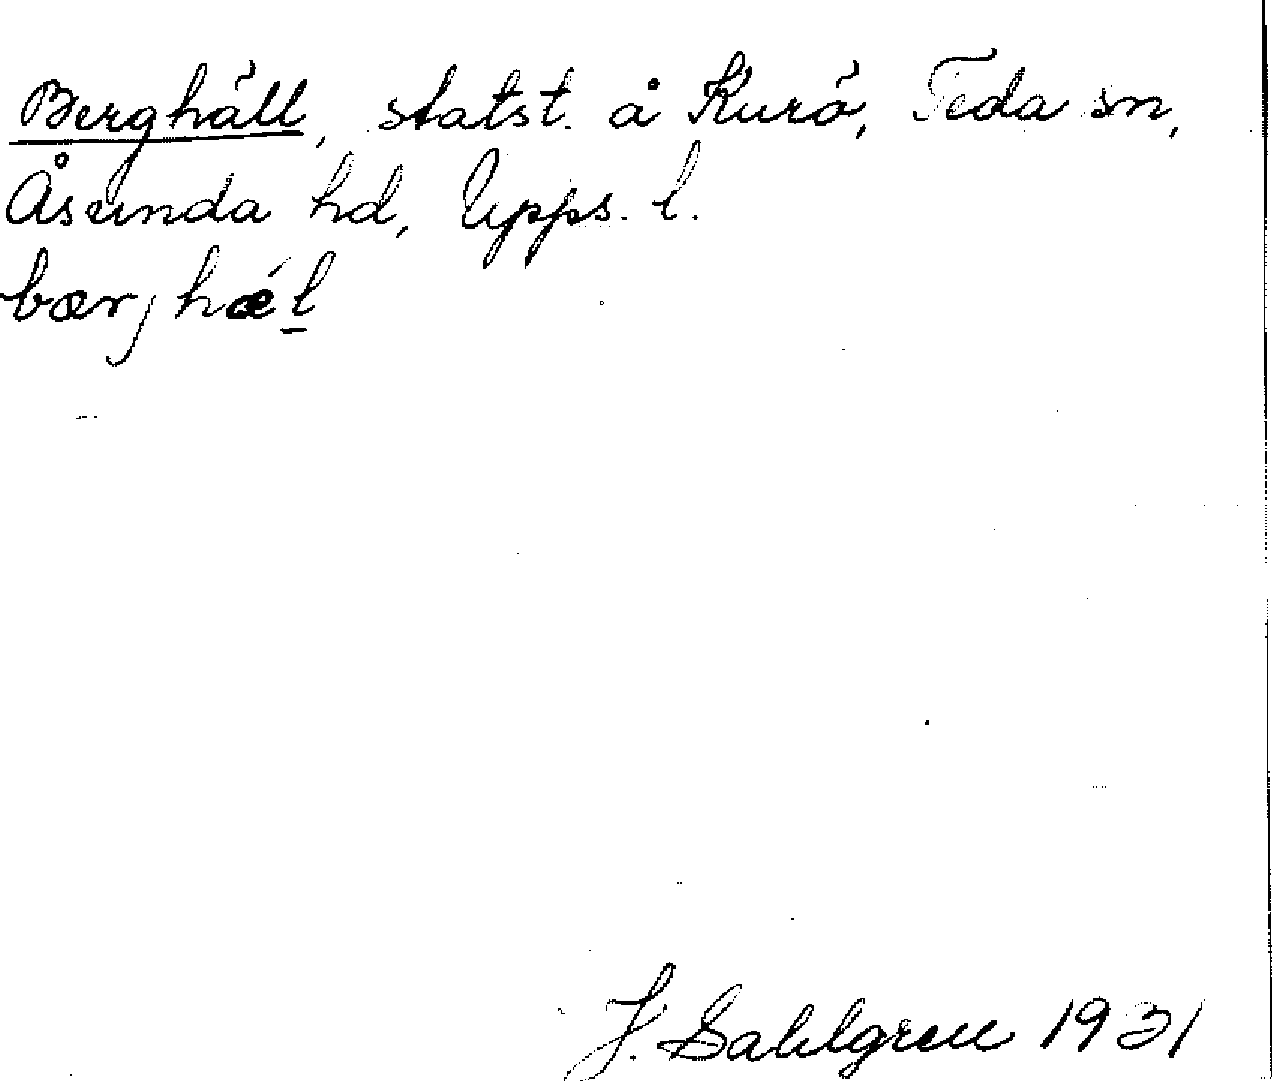 Berghäll, statst. å Kurö, Teda sn,
Åsunda hd, Upps. l.
bærjhǽl̲
J. Sahlgren 1931